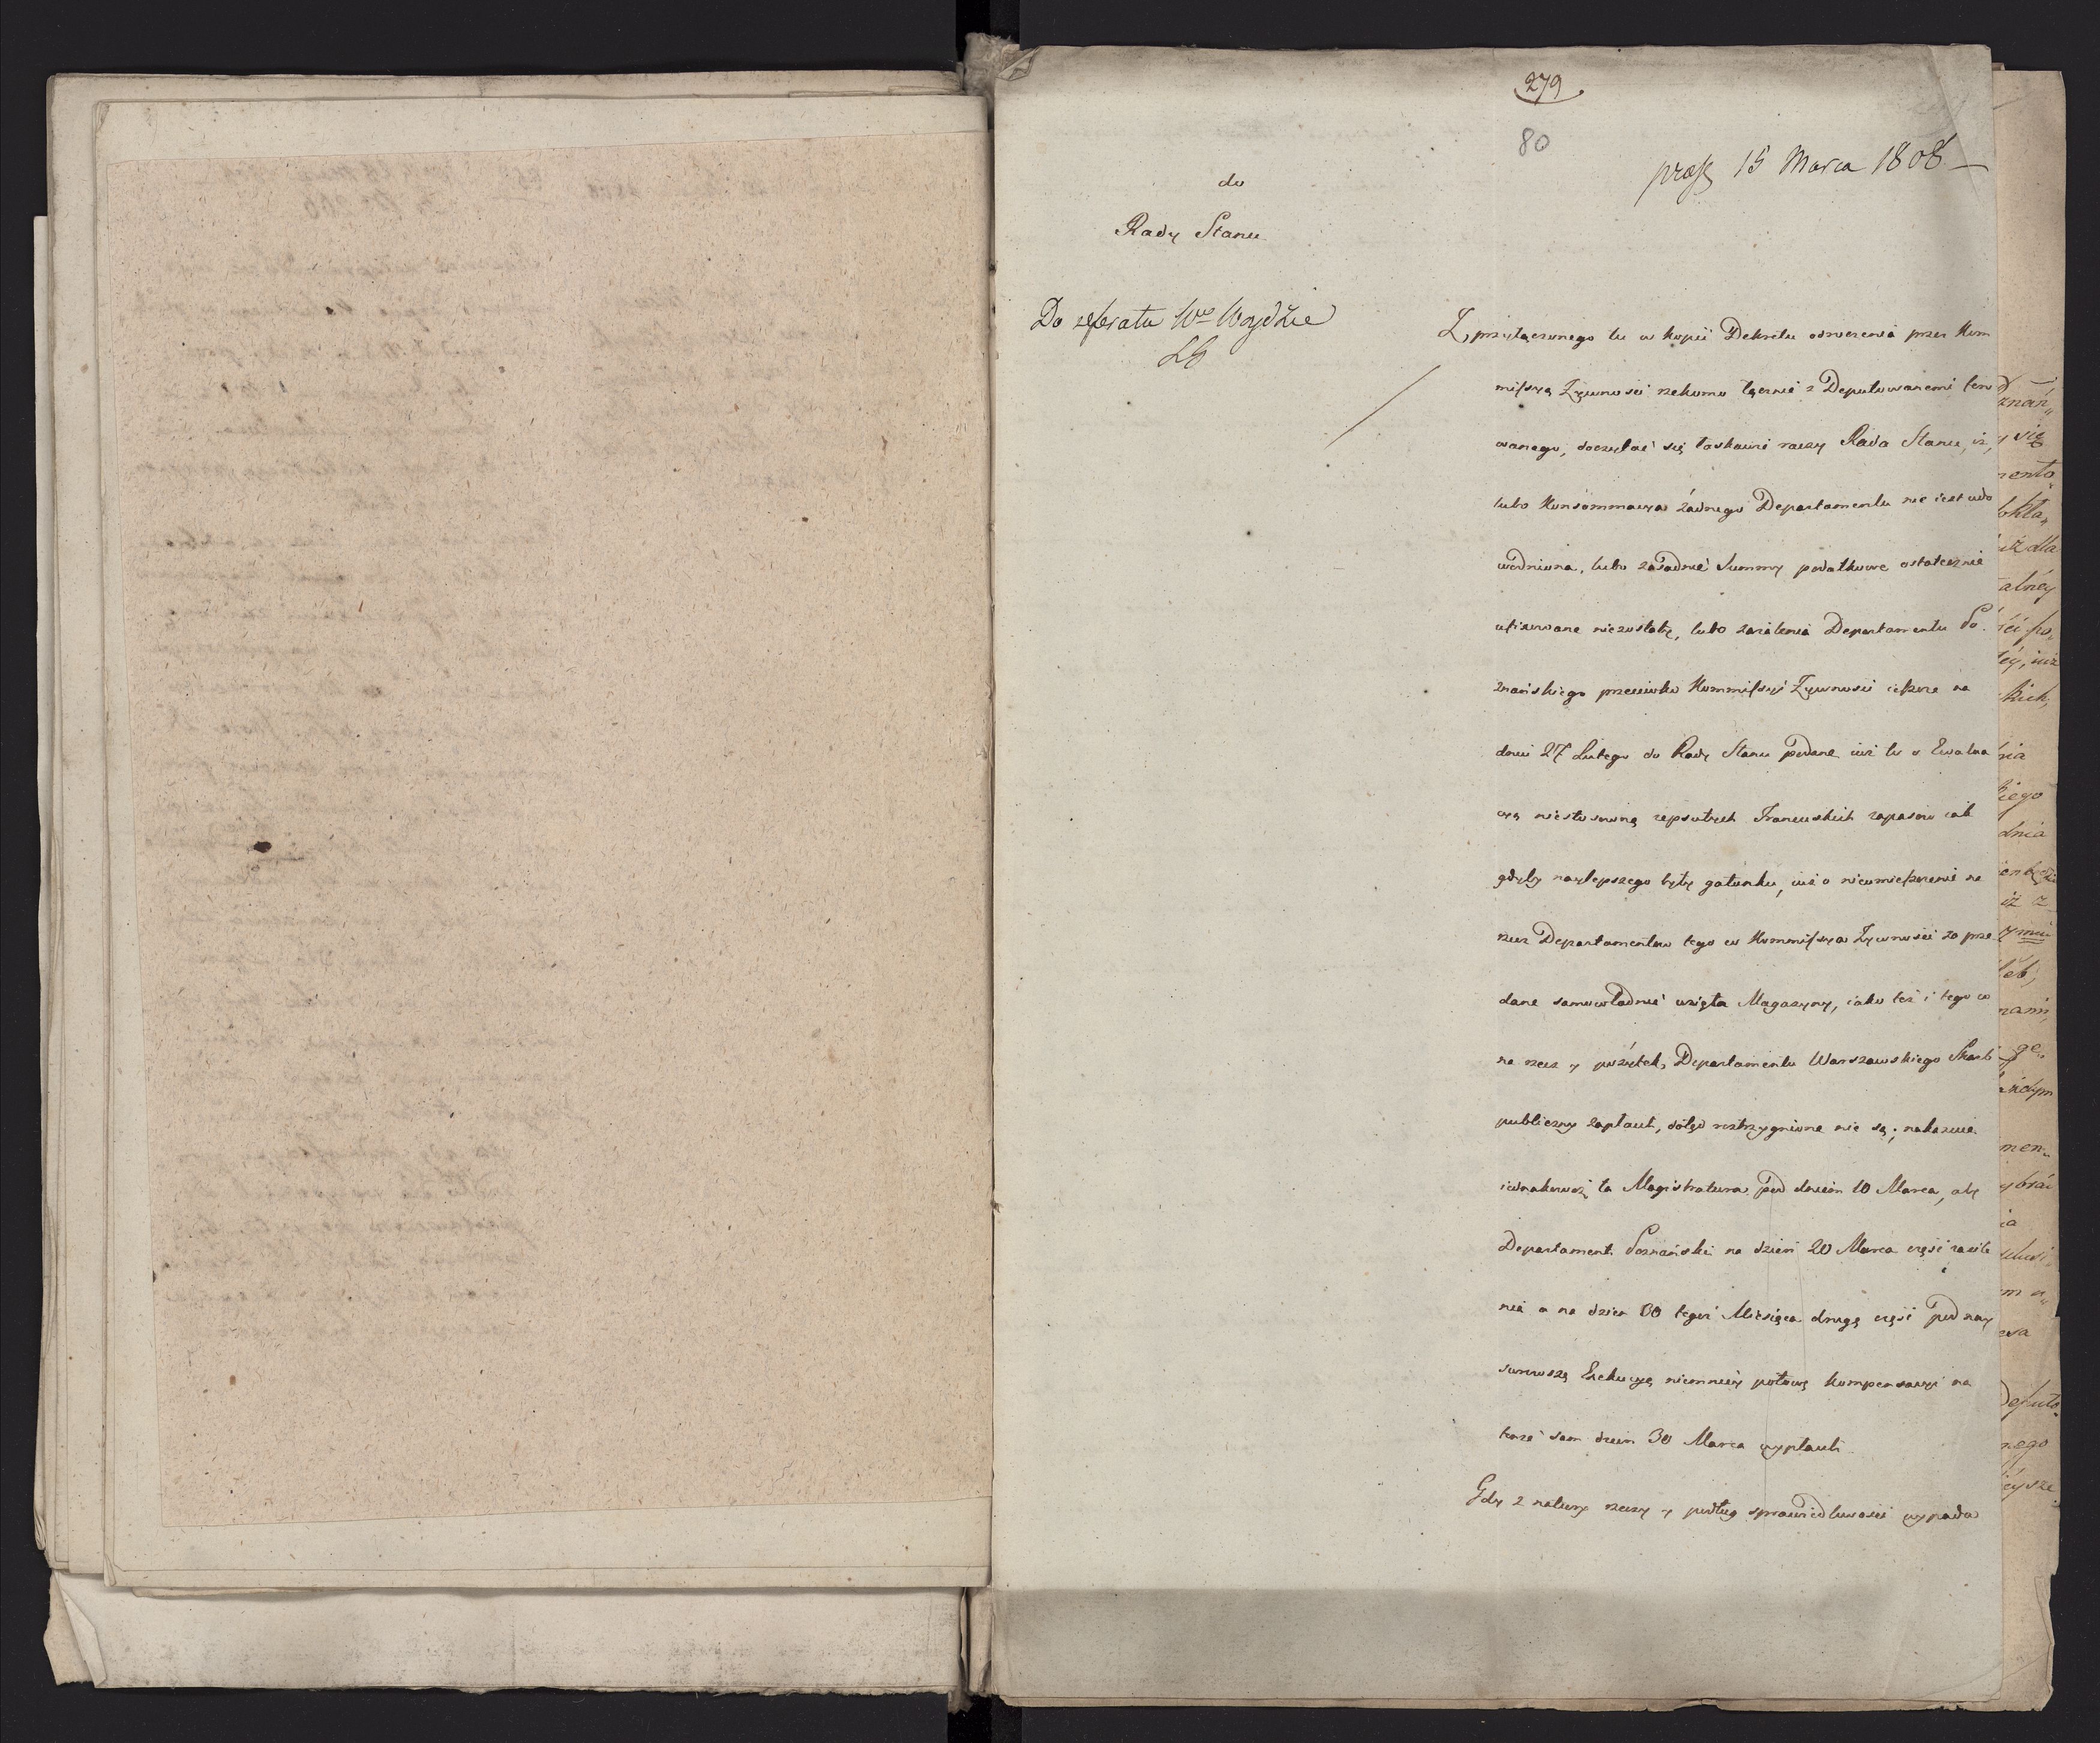 279
80
15 Marca 1808 —
do
Rady Stanu
Do referatu Wo
Z, przyłączonego tu w kopii Dekretu odnoszenia przez Kom
mifsyą Zywności rzekomo łącznie z Deputowanemi
wanego, doczytać się łaskawie raczy Rada Stanu, iż,
lubo Konsommacya żadnego Departamentu nie iest udo
wodniona, lubo zasadnie Summy podatkowe ostatecznie
niezostały, lubo zażalenia Departamentu Po.
znańskiego przeciwko Kommifsyi Zywności ieszcze na
dniu 27 Lutego do Rady Stanu podane iuż to o Ewalua
cyą niestosowną zepsutych Francuskich zapasow iak
gdyby naylepszego były gatunku, iuż o nieumieszczenie na
rzecz Departamentow tego co Kommifsya Zywności za prze
dane samowładnie wzięła Magazyny, iako też i tego co
na rzecz y pożytek, Departamentu Warszawskiego Skarb
publiczny zapłacił, dotąd roztrzygnione nie są; nakazuie
iednakowoż ta Magistratura pod dniem 10 Marca, aby
Departament Poznański na dzień 20 Marca część
nia a na dzień 30 tegoż Miesiąca drugą część pod nay
surowszą Exekucyą niemniey połowę kompensacyi na
tenże sam dzien 30 Marca wypłacił.
Gdy z natury rzeczy y podług sprawiedliwości wypada